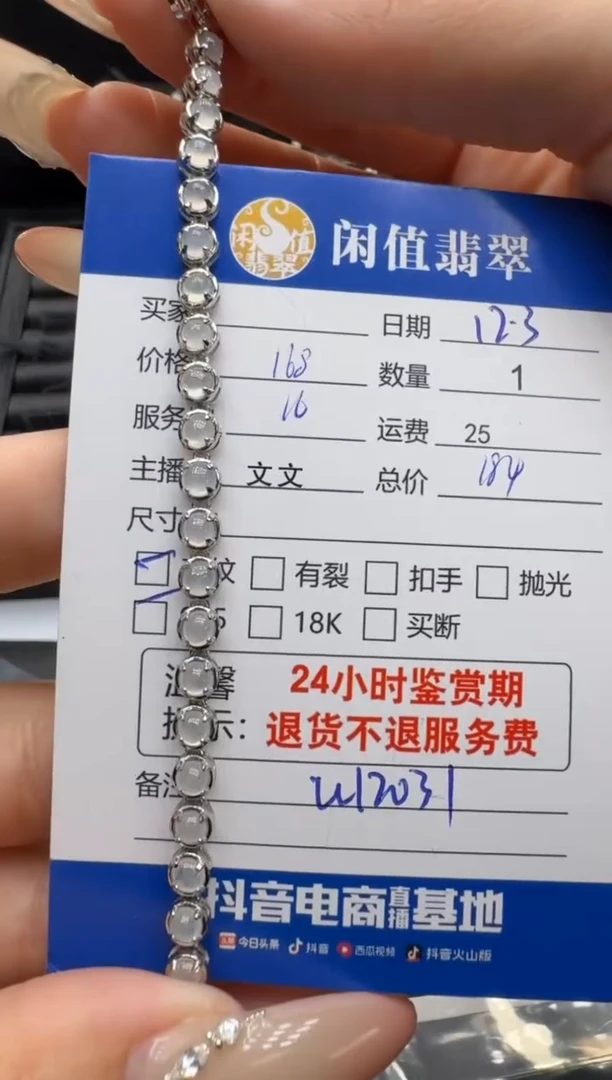 闲值翡翠
闲值翡翠
买家 日期 12.3
价格 168 数量 1
服务 16 运费 25
主播 文文 总价 184
尺寸
纹 有裂 扣手 抛光
5 18K 买断
温馨 24小时鉴赏期
提示: 退货不退服务费
备注 W12031
抖音电商直播基地
头条 今日头条 抖音 西瓜视频 抖音火山版